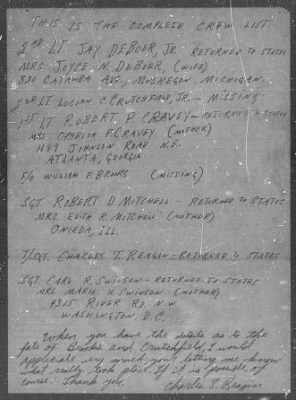 THIS IS THE COMPLETE CREW LIST
2nd LT. JAY DEBOER, JR. RETURNED TO STATES
MRS JOYCE N. DEBOER, (WIFE)
320 CATAWBA AVE, MUSKEGON MICHIGAN.
LT LUCIAN C. CRUTCHFIELD, JR. - MISSING
1st LT ROBERT P. CRAVEY - RETURNED TO STATES
OPHELIA P. CRAVEY (MOTHER)
1189 JOHNSON ROAD N.E.
ATLANTA, GEORGIA
F/O WILLIAM F BROOKS (MISSING)
SGT. ROBERT D. MITCHELL - RETURNED TO STATES
MRS. EDITH R. MITCHELL (MOTHER)
ONEIDA, ILL.
T/SGT. CHARLES T. REAGIN - RETURNED TO STATES
SGT. CARL R. SWINSON - RETURNED TO STATES
MRS. MARIE H. SWINSON (MOTHER)
RIVER RD. N.W.
WASHINGTON, D.C.
When you have the details as to the
fate of Brooks and Crutchfield, I would
appreciate very much your letting me know
what really took place if it is possible of
course. Thank you,
Charles T. Reagin